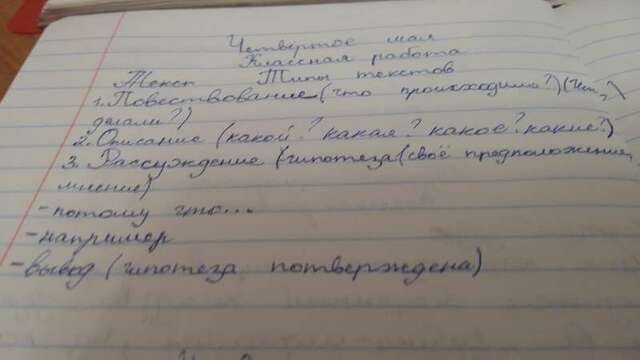 Четвёртое мая
Классная работа
Текст Типы текстов
1. Повествование (что происходило?) (Что
делали?)
2. Описание (какой? какая? какое? какие?)
3. Рассуждение (гипотеза (своё предположение,
мнение)
- потому что...
- например
- вывод (гипотеза потверждена)